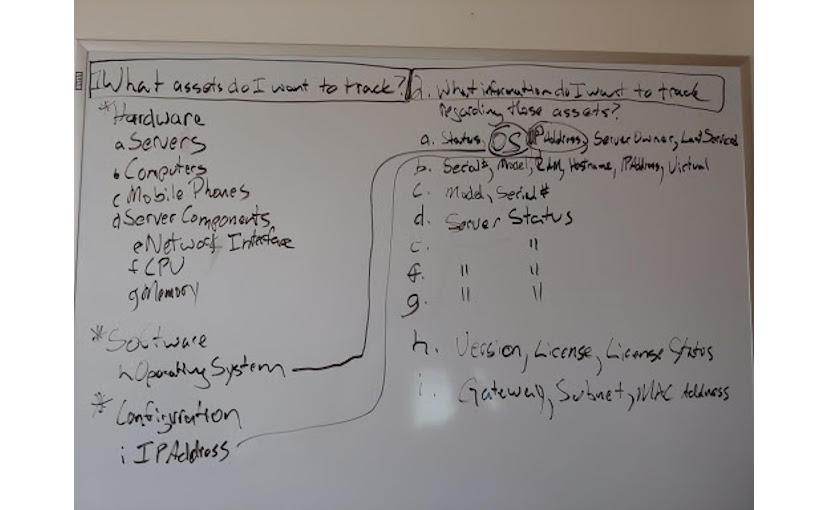 1. What assets do I want to track?
* Hardware
a Servers
b Computers
c Mobile Phones
d Server Components
e Network Interface
f CPU
g Memory
* Software
h Operating System
* Configuration
i IP Address
2. What information do I want to track
regarding those assets?
a. Status, OS, IP Address, Server Owner, Last Serviced
b. Serial #, Model, RAM, Hostname, IP Address, Virtual
c. Model, Serial #
d. Server Status
e. "
f. " "
g. " "
h. Version, License, License Status
i. Gateway, Subnet, MAC Address